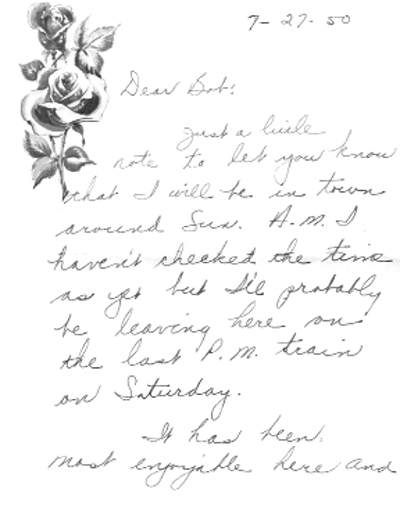 7-27-50
Dear Bob:
Just a little
note to let you know
that I will be in town
around Sun. A.M. I
haven't checked the time
as yet but I'll probably
be leaving here on
the last P.M. train
on Saturday.
It has been
most enjoyable here and